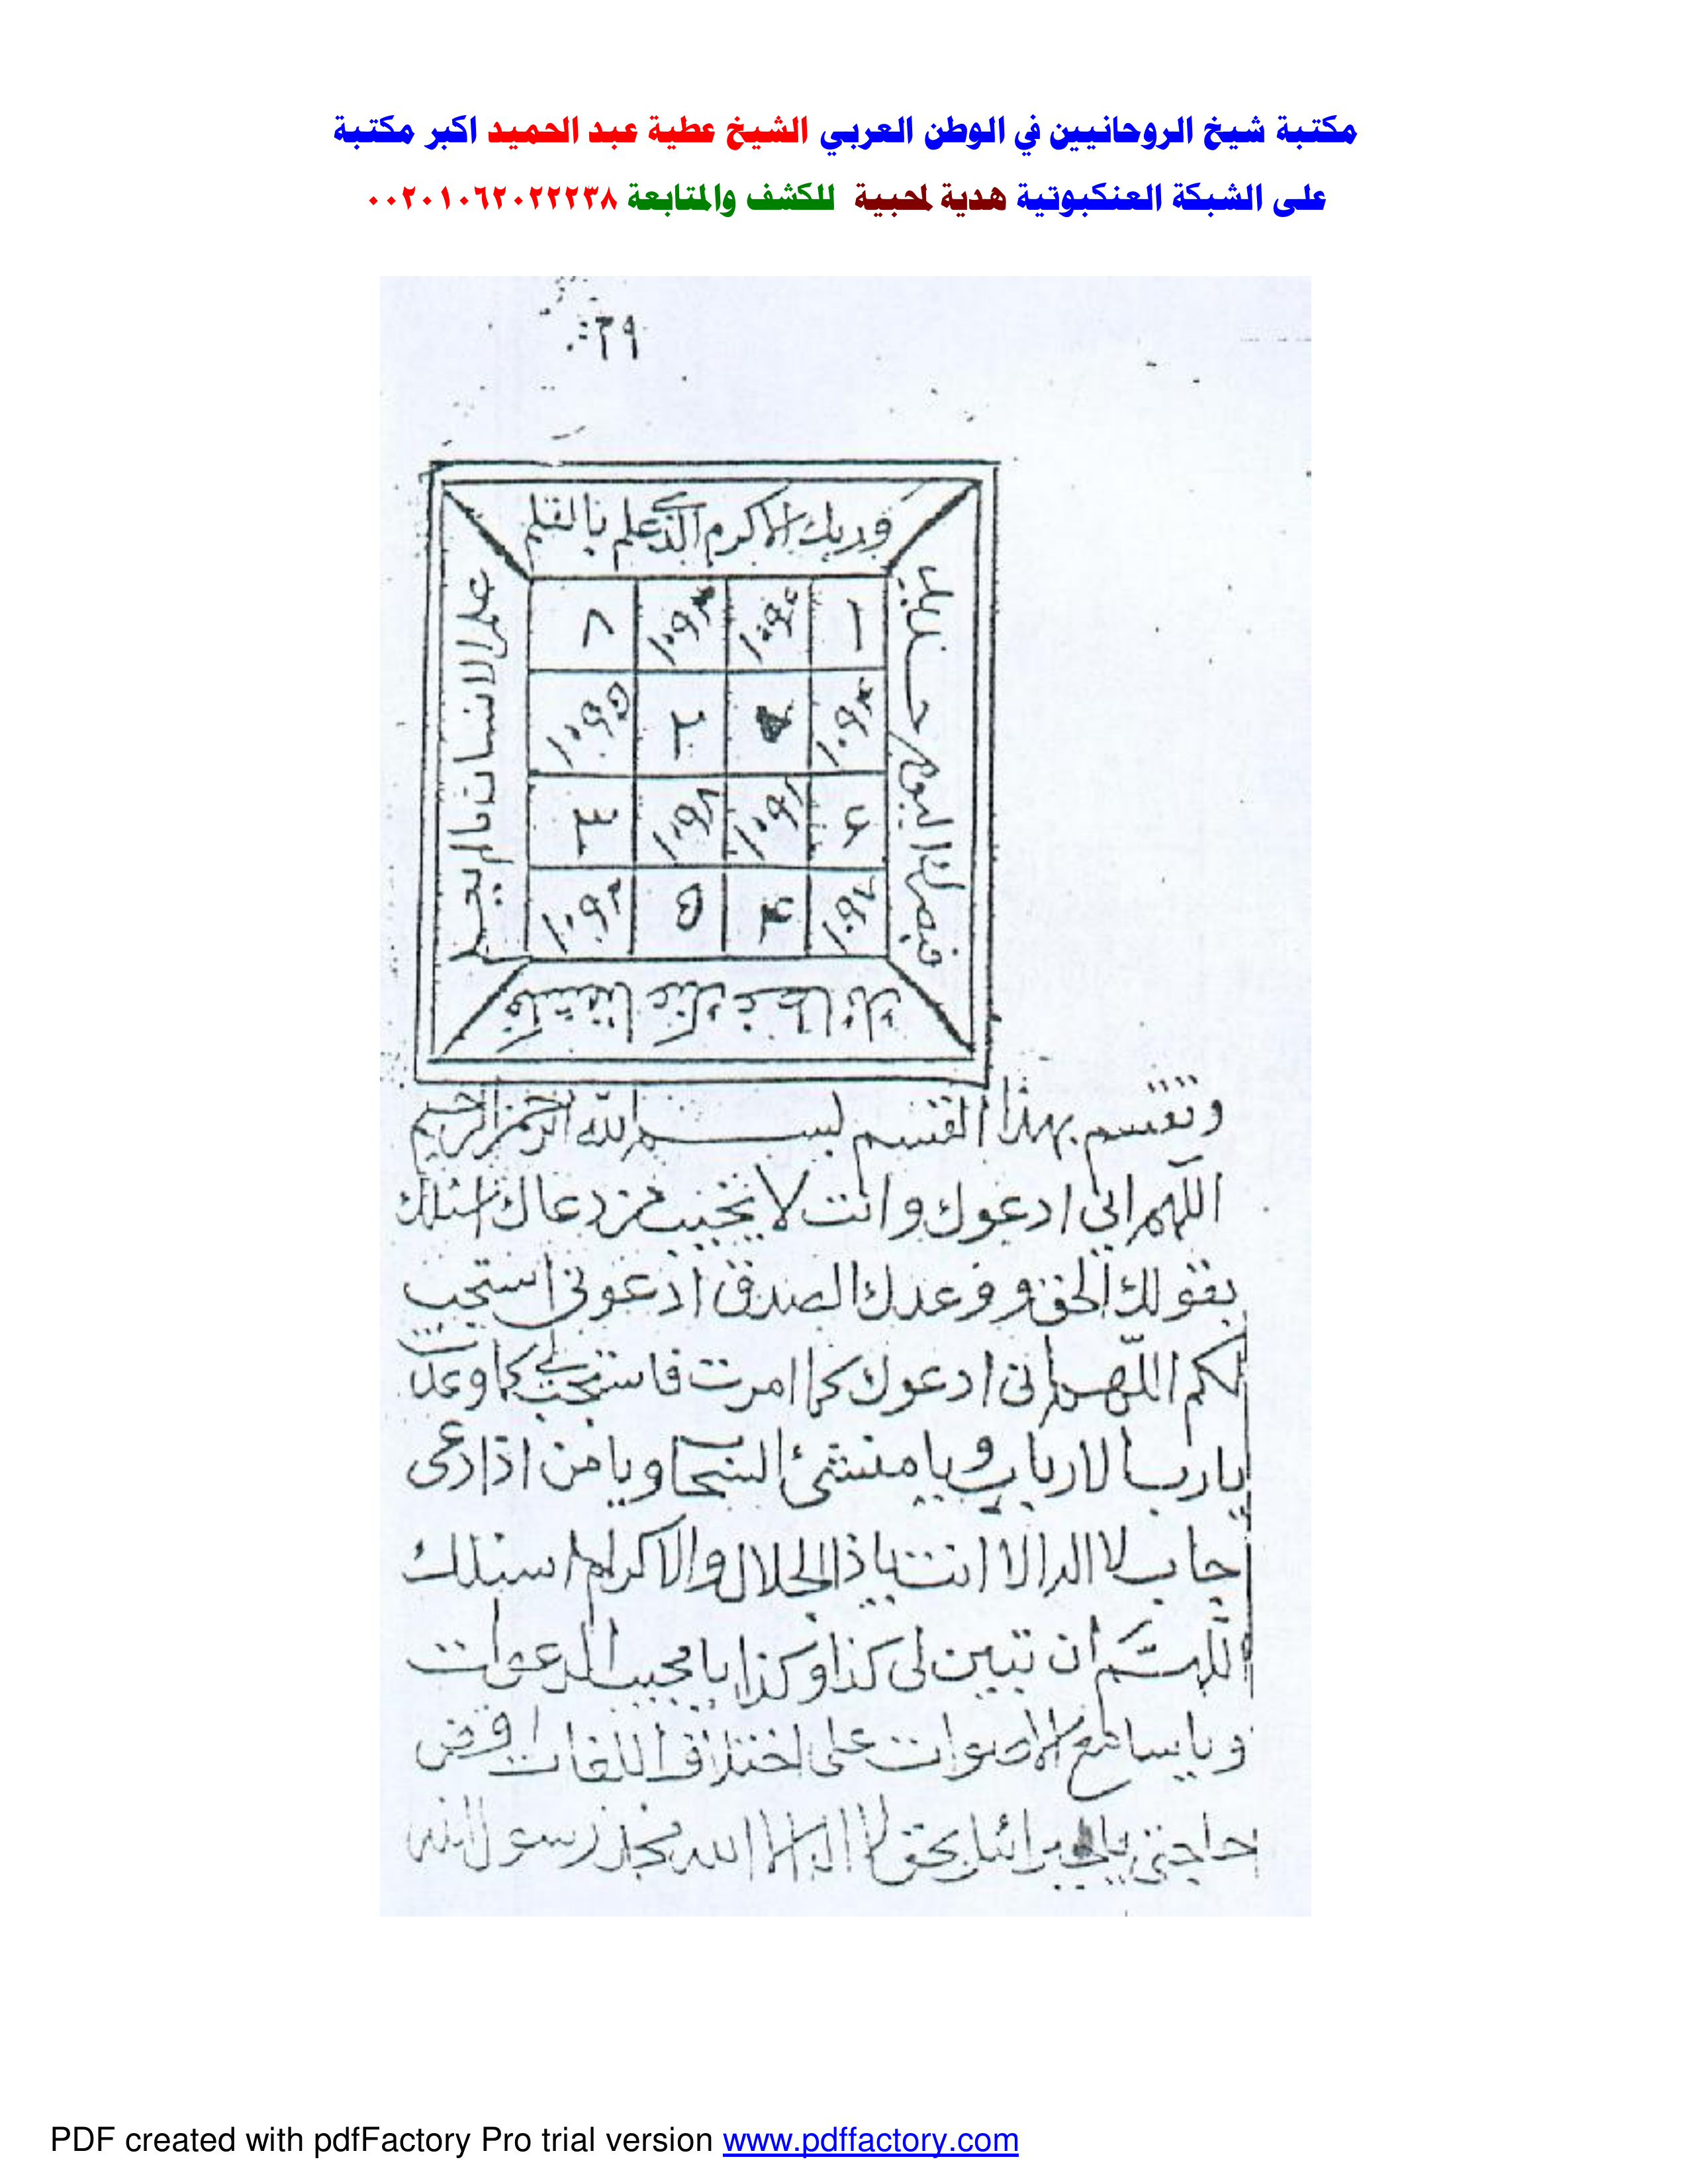 مكتبة شيخ الروحانيين في الوطن العربي الشيخ عطية عبد الحميد اكبر مكتبة
على الشبكة العنكبوتية هدية لمحبية للكشف والمتابعة ٠٠٢٠١٠٦٢٠٢٢٢٣٨
٢٩
وربك الاكرم الذى علم بالقلم
علم الانسان مالم يعلم
فكشفنا عنك غطاءك
فبصرك اليوم حديد
وتقسم بهذا القسم بسم الله الرحمن الرحيم
اللهم انى ادعوك وانت لا تخيب من دعاك اسئلك
بقولك الحق ووعدك الصدق ادعونى استجب
لكم اللهم انى ادعوك كما امرت فاستجب لى كما وعدت
يارب الارباب ويا منشئ السحاب ويا من اذا دعى
اجاب لا اله الا انت ياذا الجلال والاكرام اسئلك
اللهم ان تبين لى كذا وكذا يا مجيب الدعوات
ويا سامع الاصوات على اختلاف اللغات اقض
حاجتى بحق لا اله الا الله محمد رسول الله
PDF created with pdfFactory Pro trial version www.pdffactory.com